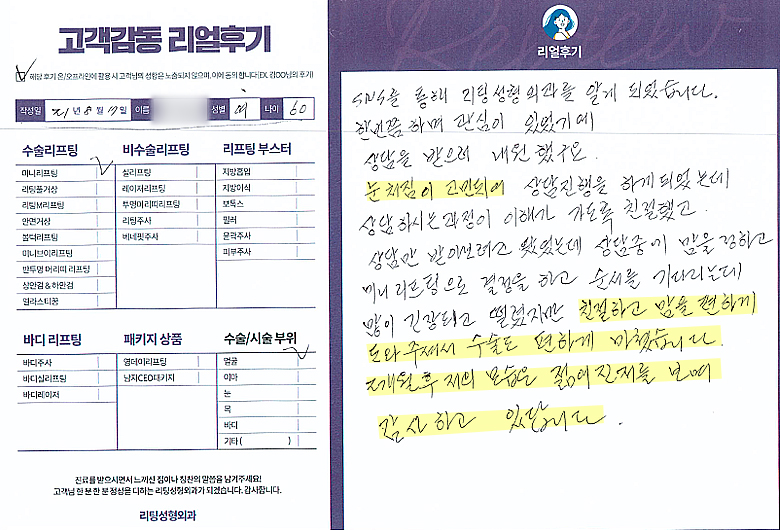 고객감동 리얼후기
해당 후기 온/오프라인에 활용 시 고객님의 성함은 노출되지 않으며, 이에 동의 합니다(EX. 김OO님의 후기)
작성일 21년 8월 17일 이름 성별 여 나이 60
수술리프팅
미니리프팅
리팅풀거상
리팅M리프팅
안면거상
볼덕리프팅
미니브이리프팅
반투명 머리띠 리프팅
상안검 & 하안검
엘라스티꿈
비수술리프팅
실리프팅
레이저리프팅
투명머리띠리프팅
리팅주사
버네핏주사
리프팅 부스터
지방흡입
지방이식
보톡스
필러
윤곽주사
피부주사
바디 리프팅
바디주사
바디실리프팅
바디레이저
패키지 상품
영데이리프팅
남자CEO패키지
수술/시술 부위
얼굴
이마
눈
목
바디
기타 ( )
진료를 받으시면서 느끼신 점이나 칭찬의 말씀을 남겨주세요!
고객님 한 분 한 분 정성을 다하는 리팅성형외과가 되겠습니다. 감사합니다.
리팅성형외과
Review
리얼후기
SNS를 통해 리팅성형외과를 알게 되었습니다.
한번쯤 하며 관심이 있었기에
상담을 받으러 내원했구요.
눈처짐이 고민되어 상담진행을 하게되었는데
상담하시는과정이 이해가 가도록 친절했고.
상담만 받아보려고 왔었는데 상담중에 맘을 정하고
미니리프팅으로 결정을 하고 순서를 기다리는데
많이 긴장되고 떨렸지만 친절하고 맘을 편하게
도와주셔서 수술도 편하게 마쳤습니다.
2개월후 저의 모습은 젊어진저를 보며
감사하고 있답니다.